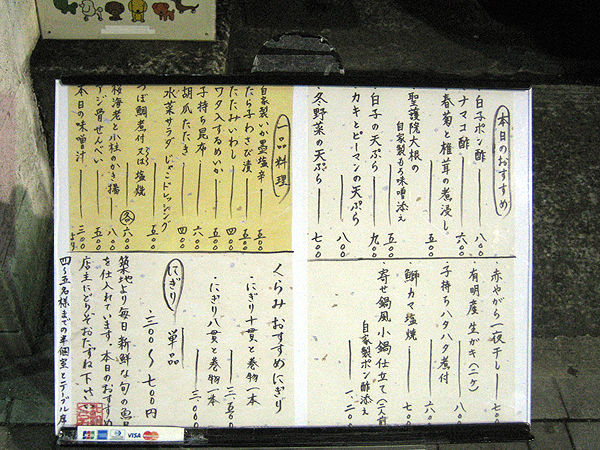 本日のおすすめ
白子ポン酢 八〇〇
ナマコ酢 六〇〇
春菊と椎茸の煮浸し 五〇〇
聖護院大根の
自家製もろ味噌添え 五〇〇
白子の天ぷら 九〇〇
カキとピーマンの天ぷら 八〇〇
冬野菜の天ぷら 七〇〇
赤やがら一夜干し 七〇〇
有明産生がキ(二ケ) 八〇〇
子持ちハタハタ煮付 六〇〇
鰤カマ塩焼 六〇〇
寄せ鍋風小鍋仕立て(二人前)
自家製ポン酢添え 一、二〇〇
一品料理
自家製いか墨塩辛 五〇〇
たら子わさび漬 五〇〇
たたみいわし 四〇〇
ワタ入するめいか 五〇〇
子持ち昆布 六〇〇
胡瓜たたき 四〇〇
水菜サラダ じゃこドレッシング 五〇〇
つぼ鯛煮付又は塩焼 各六〇〇
桜海老と小柱のかき揚 八〇〇
アジ骨せんべい 五〇〇
本日の味噌汁 三〇〇より
くらみおすすめにぎり
・にぎり十貫と巻物一本 三、五〇〇
・にぎり八貫と巻物一本 三、〇〇〇
にぎり 単品
三〇〇〜七〇〇円
築地より毎日新鮮な旬の魚貝
を仕入れています。本日のおすすめ
店主にどうぞおたずね下さい
四〜五名様までの半個室とテーブル席
JCB
VISA